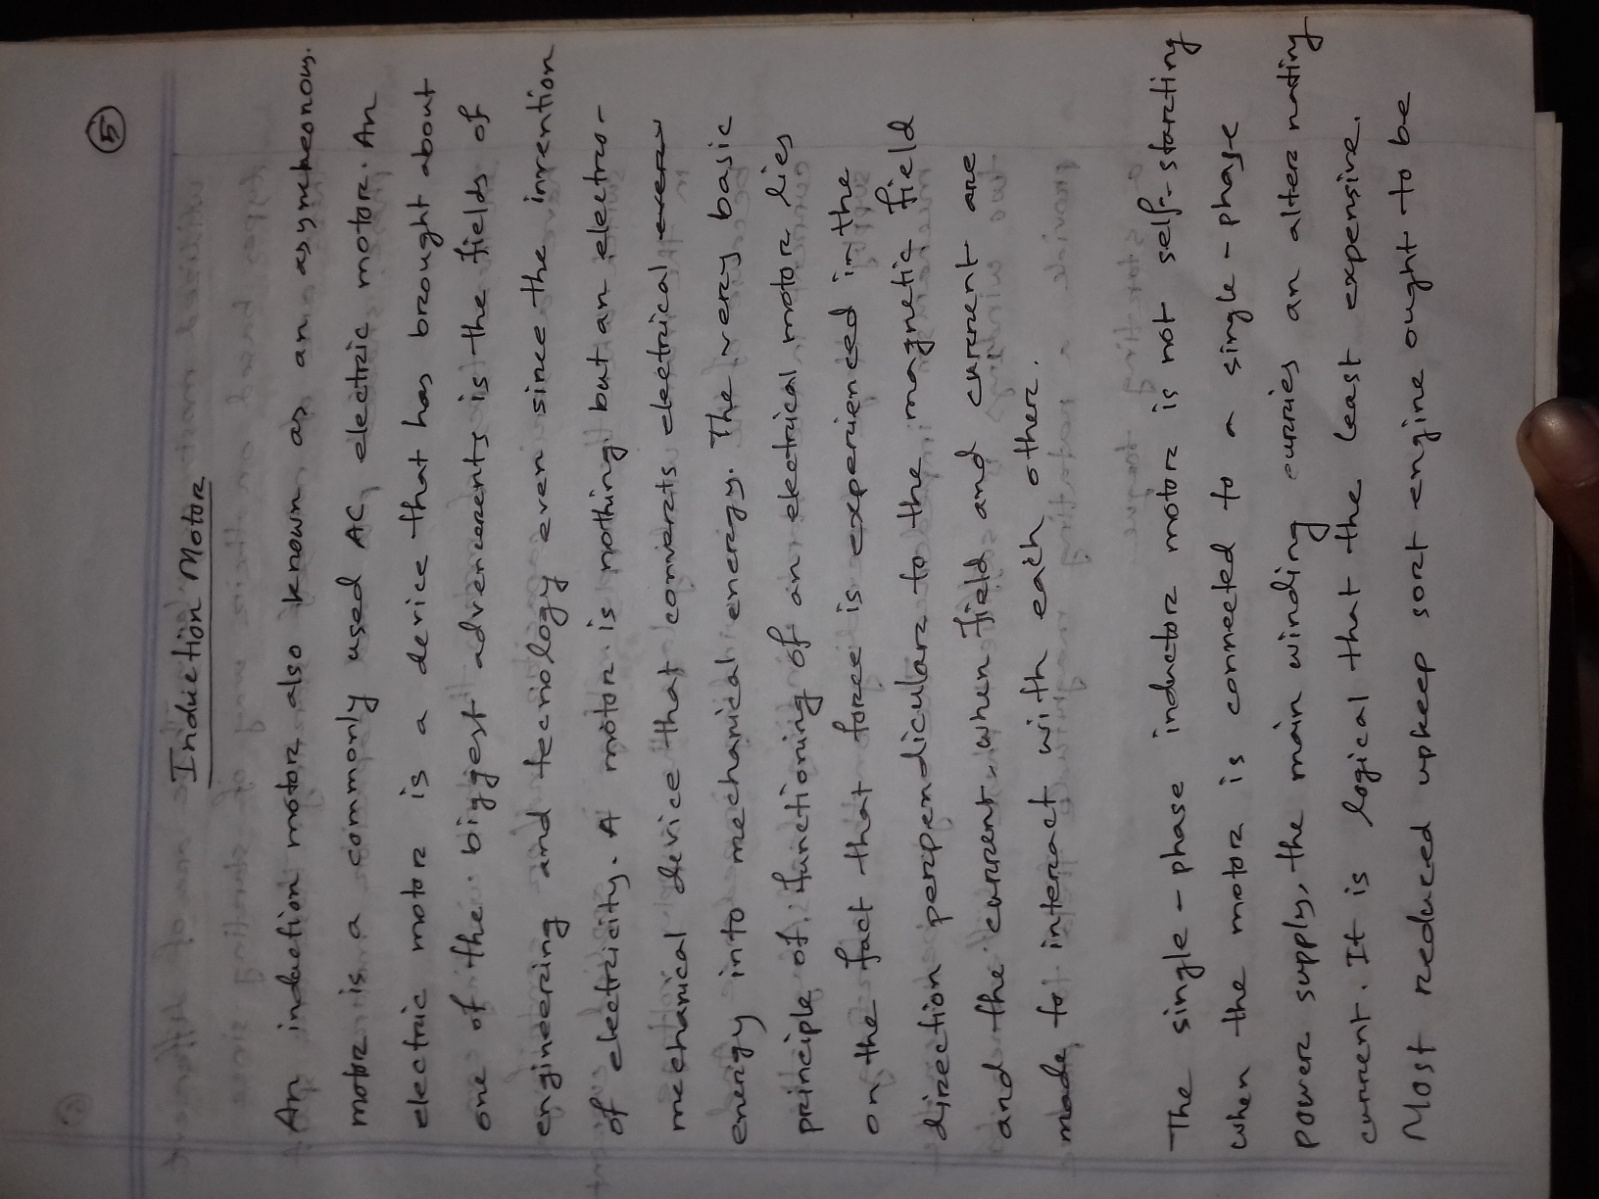 5
Induction Motor
An induction motor also known as an asyncheonous.
motor is a commonly used AC, electric motor. An
electric motor is a device that has brought about
one of the biggest advencents is the fields of
engineering and tecnology even since the invention
of electricity. A motor is nothing but an electro-
mechanical device that converts electrical
energy into mechanical energy. The very basic
principle of functioning of an electrical motor lies
on the fact that force is experienced in the
direction perpendicular to the magnetic field
and the current when field and current are
made to interact with each other.
The single-phase inductor motor is not self-starting
when the motor is connected to a single-phase
power supply, the main winding curries an alternating
current. It is logical that the least expensive.
Most reduced upkeep sort engine ought to be